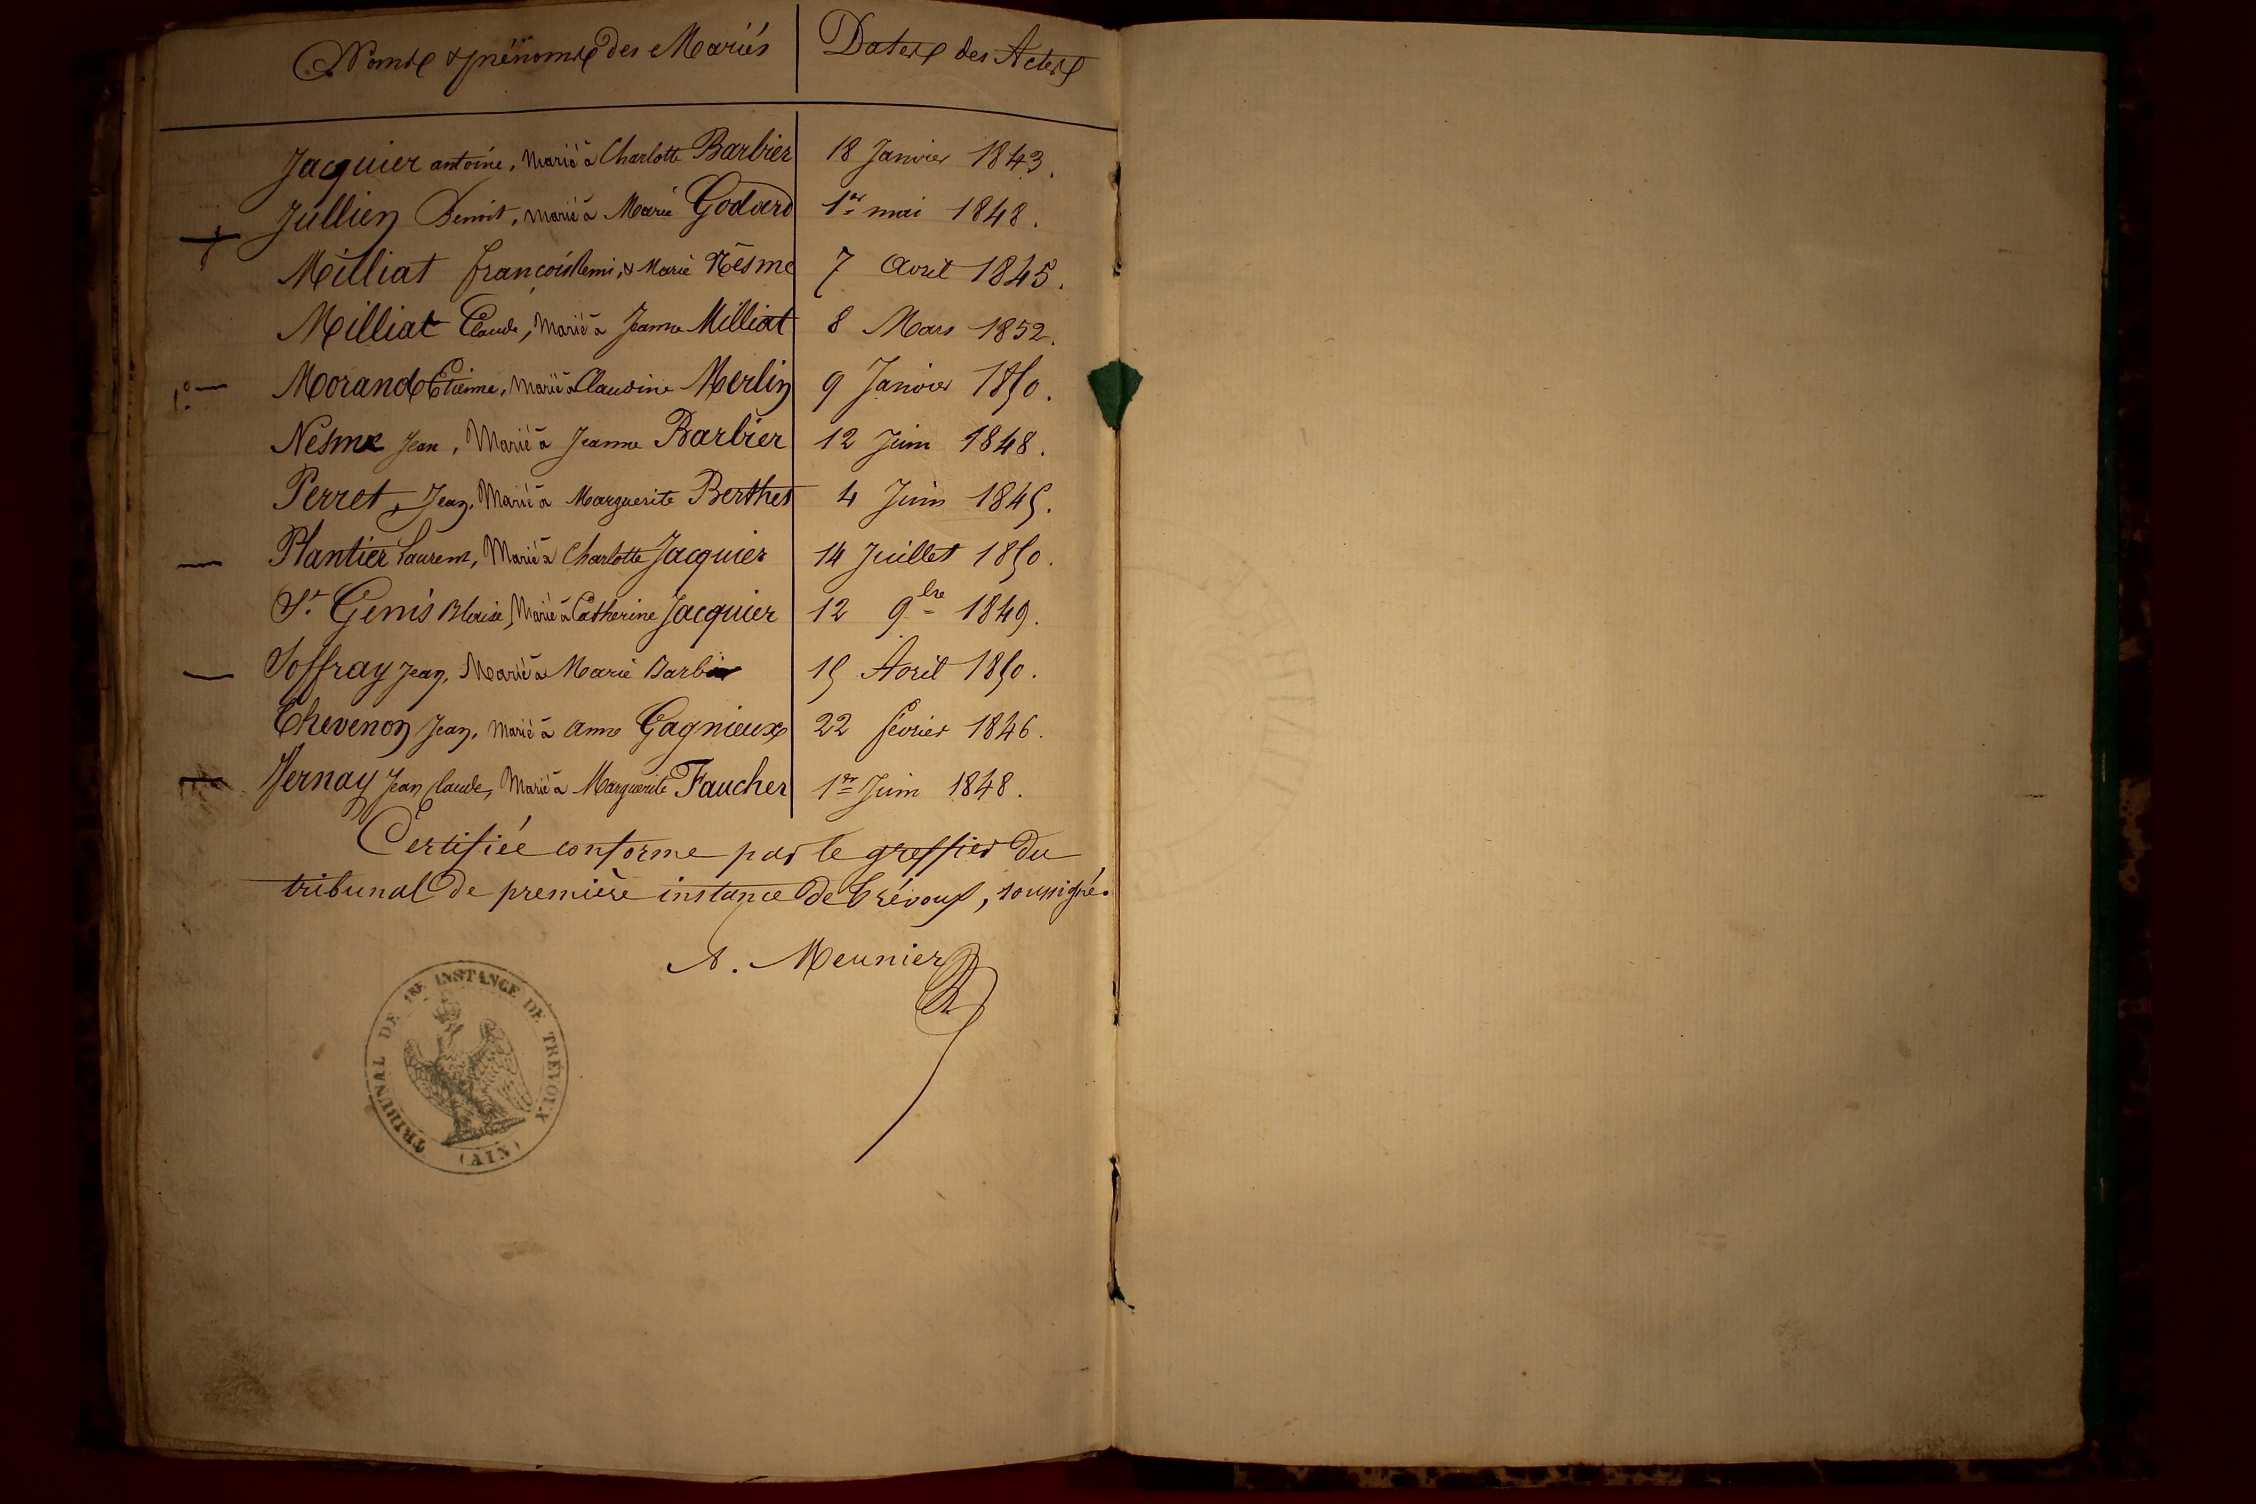 Noms & prénoms des Mariés Dates des Actes
Jacquier antoine, Marié à Charlotte Barbier 18 Janvier 1843.
Jullien Benoit, marié à Marie Godard 1er mai 1848.
Milliat françois Remi, & Marie Nesme 7 Avril 1845.
Milliat Claude, Marié à Jeanne Milliat 8 Mars 1852.
Morand Etienne, Marié à Claudine Merlin 9 Janvier 1850.
Nesme Jean, Marié à Jeanne Barbier 12 Juin 1848.
Perret, Jean, Marié à Marguerite Berthet 4 Juin 1845.
Plantier Laurent, Marié à Charlotte Jacquier 14 Juillet 1850.
St. Genis Blaise, Marié à Catherine Jacquier 12 9bre 1849.
Soffray Jean, Marié à Marie Barbier 15 Avril 1850.
Thevenon Jean, Marié à Anne Gagnieux 22 février 1846.
Vernay Jean Claude, Marié à Marguerite Faucher 1er Juin 1848.
Certifiée conforme par le greffier du
tribunal de première instance de Trévoux, soussigné.
A. Meunier
TRIBUNAL DE 1RE INSTANCE DE TRÉVOUX
(AIN)